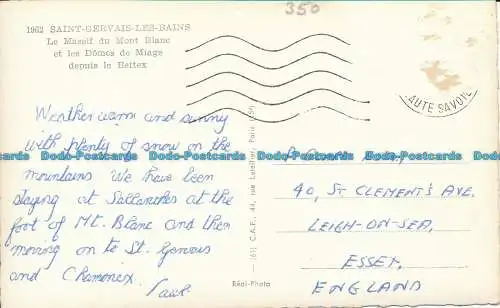 350
1962 SAINT-GERVAIS-LES-BAINS
Le Massif du Mont Blanc
et les Dômes de Miage
depuis le Bettex
HAUTE SAVOIE
Weather warm and sunny
with plenty of snow on the
mountains We have been
staying at Sallanches at the
foot of Mt. Blanc and then
moving on to St. Gervais
and Chamonex.
Paul
C.A.P., 44, rue Letellier, Paris
Réal-Photo
40, ST CLEMENT'S AVE.
LEIGH-ON-SEA,
ESSEX,
ENGLAND
Postcards Dado-Postcards Dado-Postcards Dado-Postcards